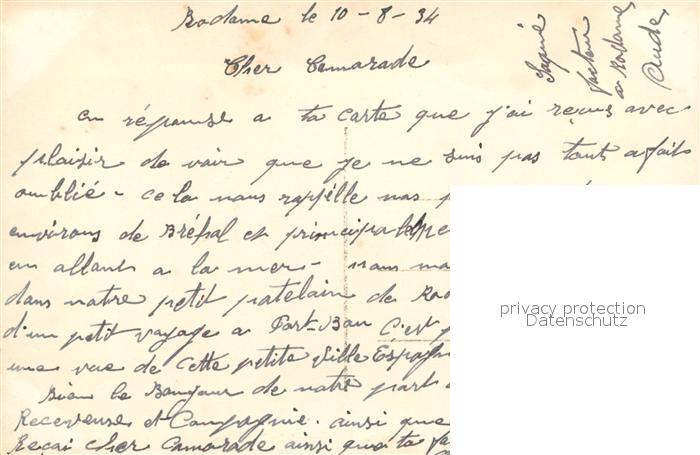 Badame le 10-8-34
Cher Camarade
en réponse a ta carte que j'ai reçus avec
plaisir de voir que je ne suis pas tout a faits
oublié - cela nous rappélle nos
environs de Bréhal et principalepe
en allant a la mer -
dans notre petit patelain de
d'un petit voyage a Port-Bou C'est
une vue de cette petite Ville Espagn
Bien le Bonjour de notre part
Receveuse et Compagnie. ainsi que
Reçoi cher Camarade ainsi que ta
facteur
a Badame
Aude
privacy protection
Datenschutz